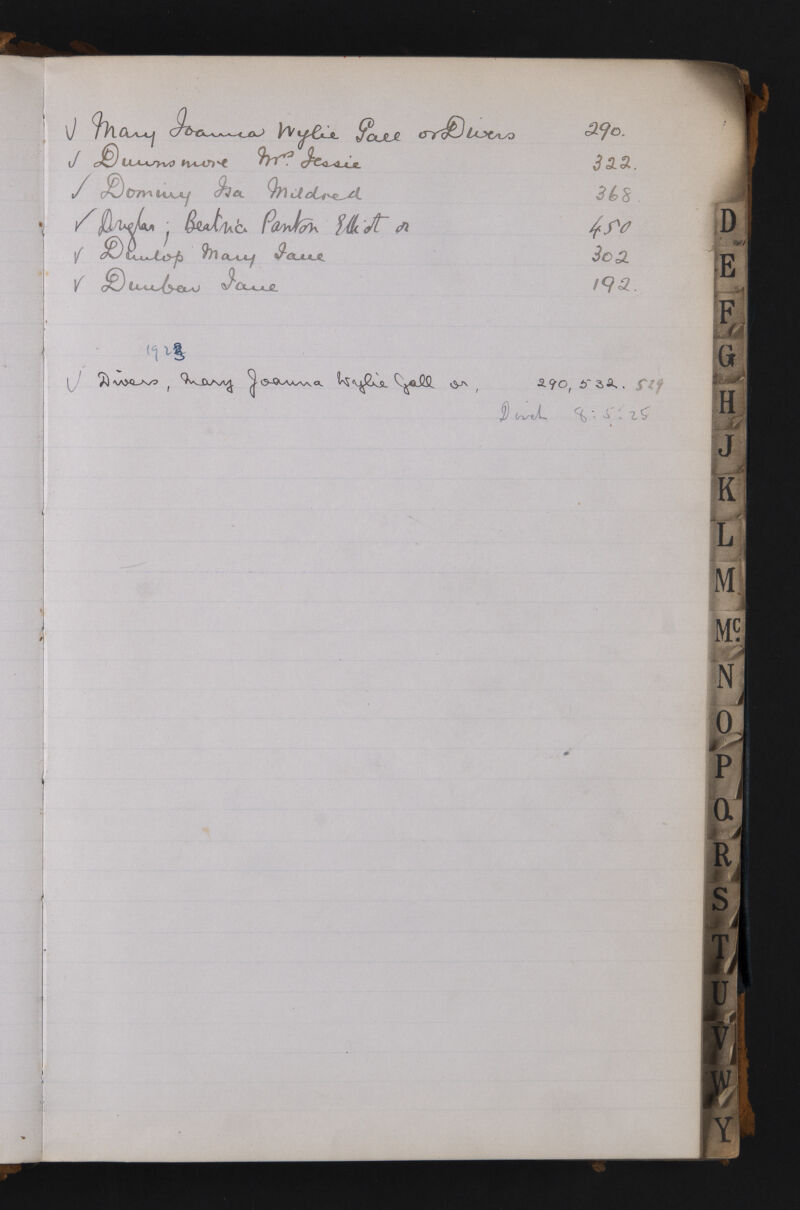 √ Mary Joanna Wylie Gall or Divers 290.
√ Dunnsmore Mrs. Jessie 322.
√ Dominy Isa Mildred 368.
√ Douglas; Beatrice Panton Elliot or 450
√ Dunlop Mary Jane 302
√ Dunbar Jane 192.
1923
√ Divers, Mary Joanna Wylie Gall or, 290, 532. 529
8:5:25
D
E
F
G
H
J
K
L
M
Mc
N
O
P
Q
R
S
T
U
V
W
Y